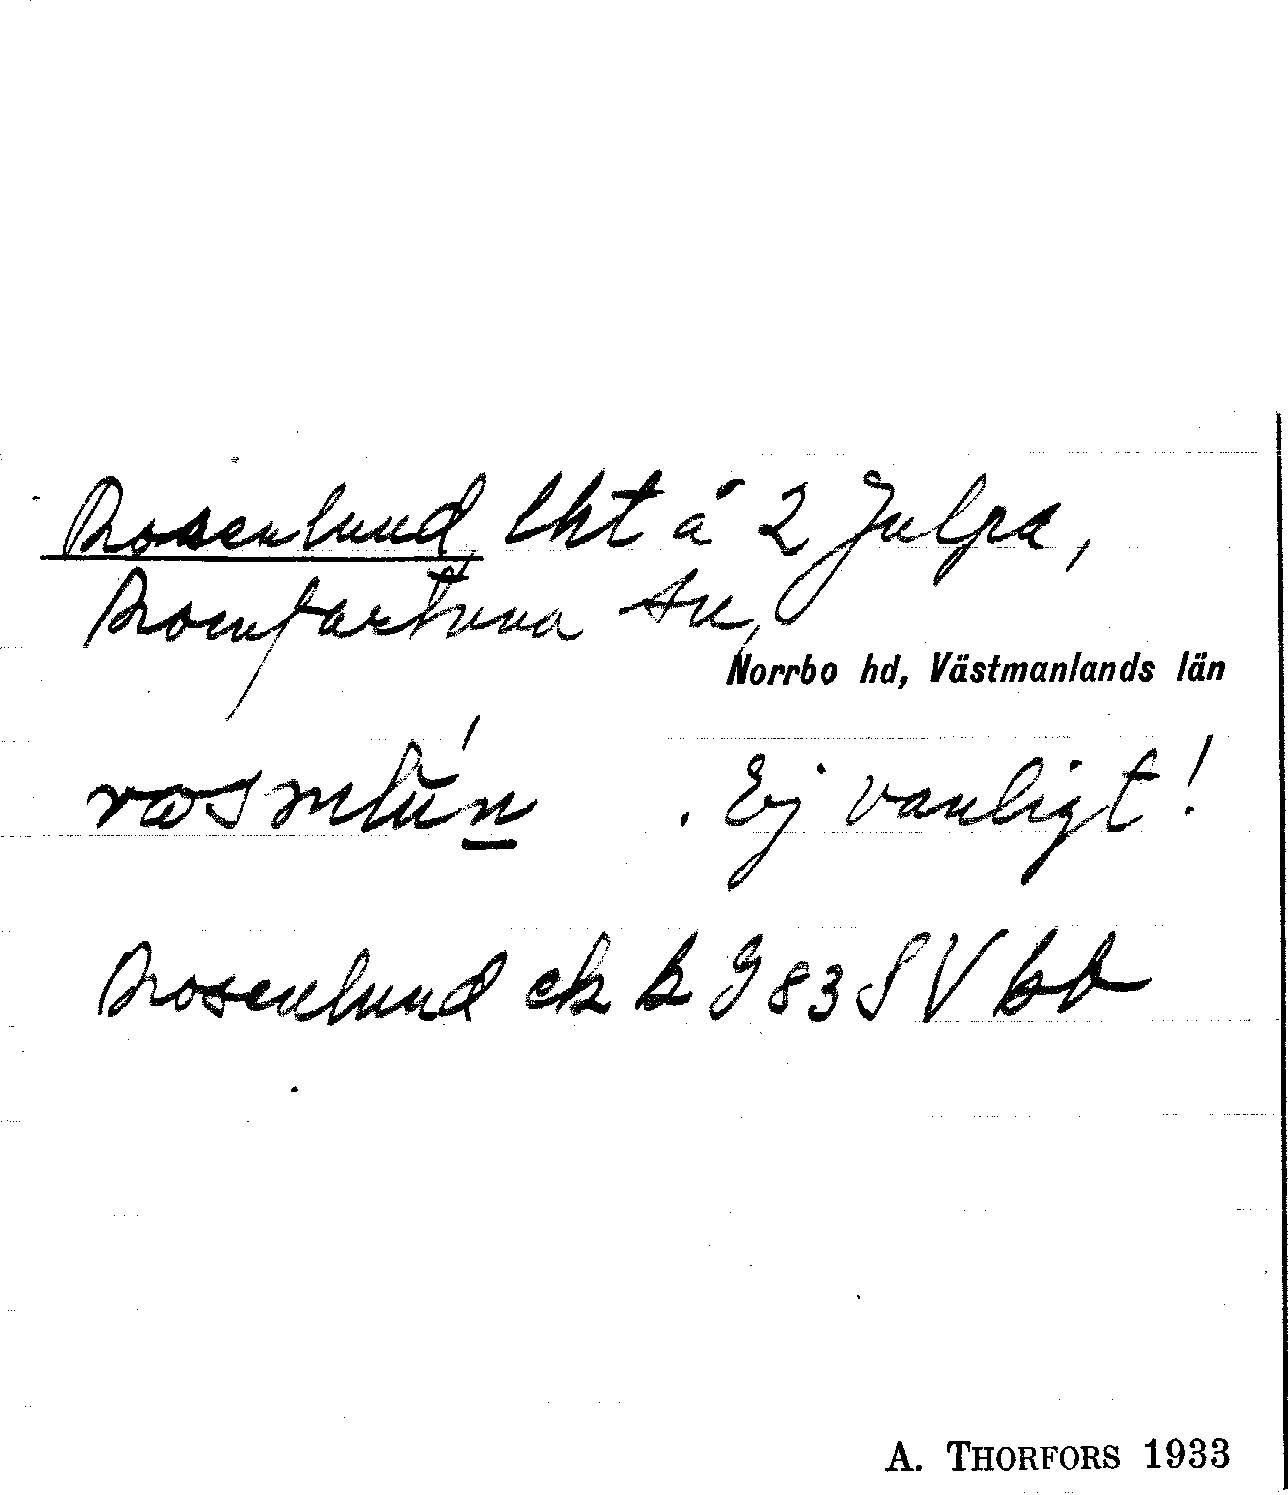 Rosenlund, lht å 2 Julpa,
Romfartuna sn,
Norrbo hd, Västmanlands län
. Ej vanligt!
Rosenlund ek bl 983 SV bd
A. THORFORS 1933